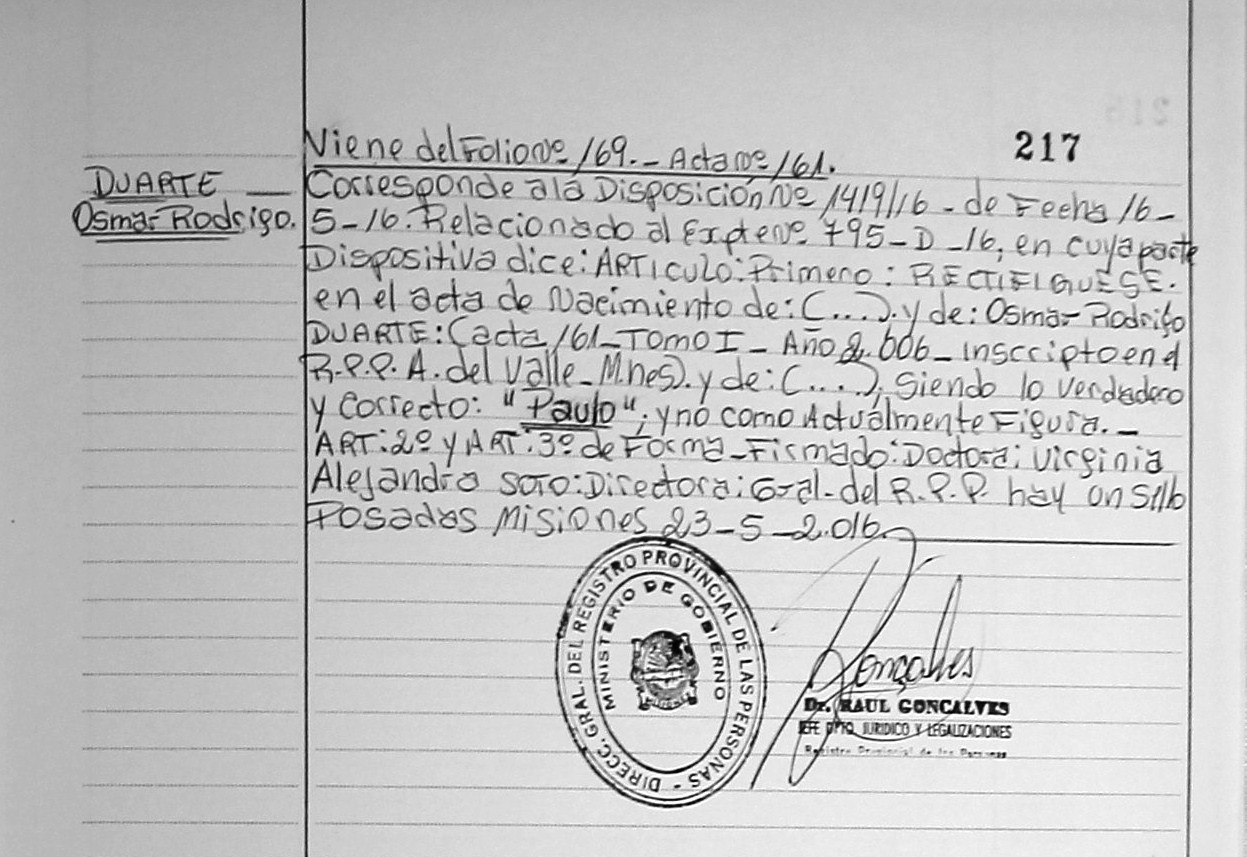 217
Viene del Folio Nº 169.- Acta Nº 161.
DUARTE
Osmar Rodrigo.
Corresponde a la Disposición Nº 1419/16 - de Fecha 16-
5-16. Relacionado al Expte Nº 795-D-16, en cuya parte
Dispositiva dice: ARTICULO: Primero: RECTIFIQUESE.
en el acta de Nacimiento de: (...). y de: Osmar Rodrigo
DUARTE: (acta 161-Tomo I - Año 2.006- Inscripto en el
R.P.P. A. del Valle - Mnes). y de: (...), Siendo lo Verdadero
y Correcto: "Paulo"; y no como Actualmente Figura.-
ART: 2º y ART: 3º de Forma - Firmado: Doctora: Virginia
Alejandra SOTO: Directora: Gral. del R.P.P. hay un Sello
Posadas Misiones 23-5-2.016
DIRECC. GRAL. DEL REGISTRO PROVINCIAL DE LAS PERSONAS -
MINISTERIO DE GOBIERNO
Gonçalves
Dr. RAUL GONCALVES
JEFE DPTO. JURIDICO Y LEGALIZACIONES
Registro Provincial de las Personas